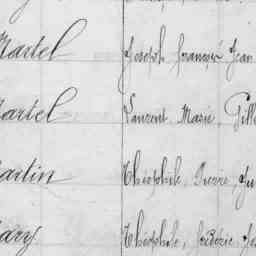 Martel Joseph François Jean
Martel Laurent, Marie, Gille
Martin Théophile, Pierre, Ju
Mary Théophile, Frédéric, Jo